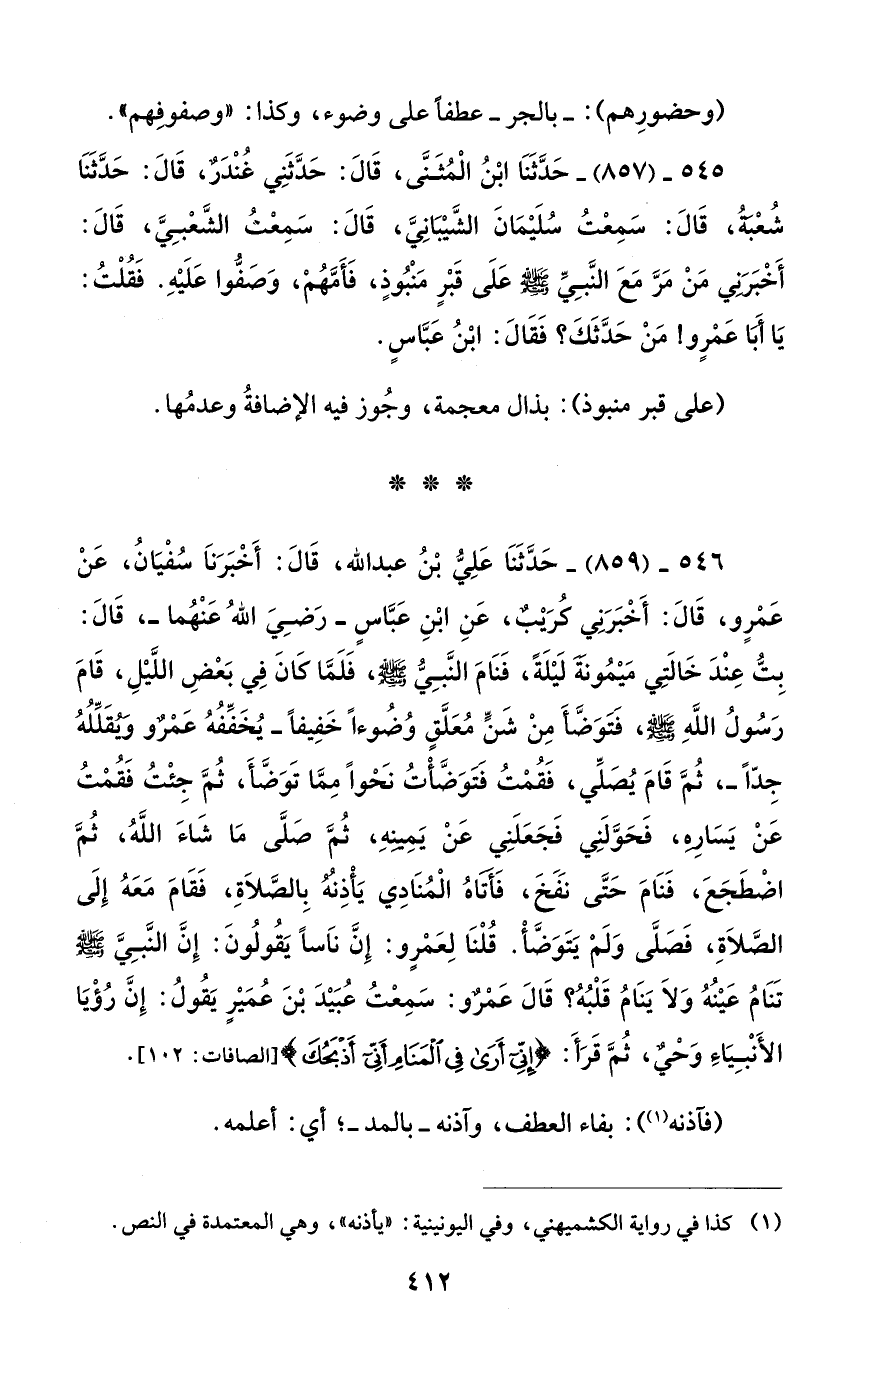 (وحضورِهم): ـ بالجر ـ عطفاً على وضوء، وكذا: «وصفوفِهم».
٥٤٥ ـ (٨٥٧) ـ حَدَّثَنَا ابْنُ الْمُثَنَّى، قَالَ: حَدَّثَنِي غُنْدَرٌ، قَالَ: حَدَّثَنَا
شُعْبَةُ، قَالَ: سَمِعْتُ سُلَيْمَانَ الشَّيْبَانِيَّ، قَالَ: سَمِعْتُ الشَّعْبِيَّ، قَالَ:
أَخْبَرَنِي مَنْ مَرَّ مَعَ النَّبِيِّ ﷺ عَلَى قَبْرٍ مَنْبُوذٍ، فَأَمَّهُمْ، وَصَفُّوا عَلَيْهِ. فَقُلْتُ:
يَا أَبَا عَمْرٍو! مَنْ حَدَّثَكَ؟ فَقَالَ: ابْنُ عَبَّاسٍ.
(على قبر منبوذ): بذال معجمة، وجُوز فيه الإضافةُ وعدمُها.
* * *
٥٤٦ ـ (٨٥٩) ـ حَدَّثَنَا عَلِيُّ بْنُ عبدالله، قَالَ: أَخْبَرَنَا سُفْيَانُ، عَنْ
عَمْرٍو، قَالَ: أَخْبَرَنِي كُرَيْبٌ، عَنِ ابْنِ عَبَّاسٍ ـ رَضِيَ اللهُ عَنْهُما ـ، قَالَ:
بِتُّ عِنْدَ خَالَتِي مَيْمُونَةَ لَيْلَةً، فَنَامَ النَّبِيُّ ﷺ، فَلَمَّا كَانَ فِي بَعْضِ اللَّيْلِ، قَامَ
رَسُولُ اللَّهِ ﷺ، فَتَوَضَّأَ مِنْ شَنٍّ مُعَلَّقٍ وُضُوءاً خَفِيفاً ـ يُخَفِّفُهُ عَمْرٌو وَيُقَلِّلُهُ
جِدّاً ـ، ثُمَّ قَامَ يُصَلِّي، فَقُمْتُ فَتَوَضَّأْتُ نَحْواً مِمَّا تَوَضَّأَ، ثُمَّ جِئْتُ فَقُمْتُ
عَنْ يَسَارِهِ، فَحَوَّلَنِي فَجَعَلَنِي عَنْ يَمِينِهِ، ثُمَّ صَلَّى مَا شَاءَ اللَّهُ، ثُمَّ
اضْطَجَعَ، فَنَامَ حَتَّى نَفَخَ، فَأَتَاهُ الْمُنَادِي يَأْذِنُهُ بِالصَّلاَةِ، فَقَامَ مَعَهُ إِلَى
الصَّلاَةِ، فَصَلَّى وَلَمْ يَتَوَضَّأْ. قُلْنَا لِعَمْرٍو: إِنَّ نَاساً يَقُولُونَ: إِنَّ النَّبِيَّ ﷺ
تَنَامُ عَيْنُهُ وَلاَ يَنَامُ قَلْبُهُ؟ قَالَ عَمْرٌو: سَمِعْتُ عُبَيْدَ بْنَ عُمَيْرٍ يَقُولُ: إِنَّ رُؤْيَا
الأَنْبِيَاءِ وَحْيٌ، ثُمَّ قَرَأَ: ﴿إِنِّيٓ أَرَىٰ فِي ٱلۡمَنَامِ أَنِّيٓ أَذۡبَحُكَ﴾ [الصافات: ١٠٢].
(فآذنه(١)): بفاء العطف، وآذنه ـ بالمد ـ؛ أي: أعلمه.
(١) كذا في رواية الكشميهني، وفي اليونينية: «يأذنه»، وهي المعتمدة في النص.
٤١٢